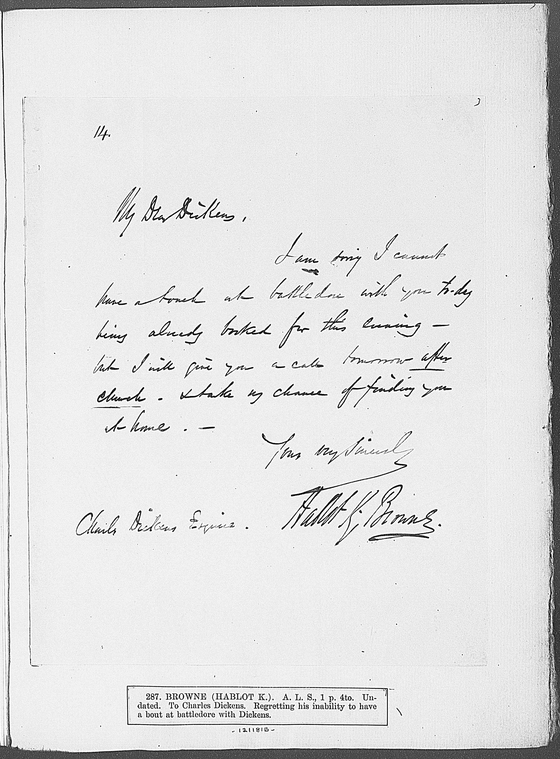 14.
My Dear Dickens,
I am sorry I cannot
have a touch at battledore with you to-day
being already booked for this evening —
but I will give you a call tomorrow after
church - & take my chance of finding you
at home . —
Yours very Sincerely
Hablot K. Browne.
Charles Dickens Esquire.
287. BROWNE (HABLOT K.). A. L. S., 1 p. 4to. Un-
dated. To Charles Dickens. Regretting his inability to have
a bout at battledore with Dickens.
- 1211815 -